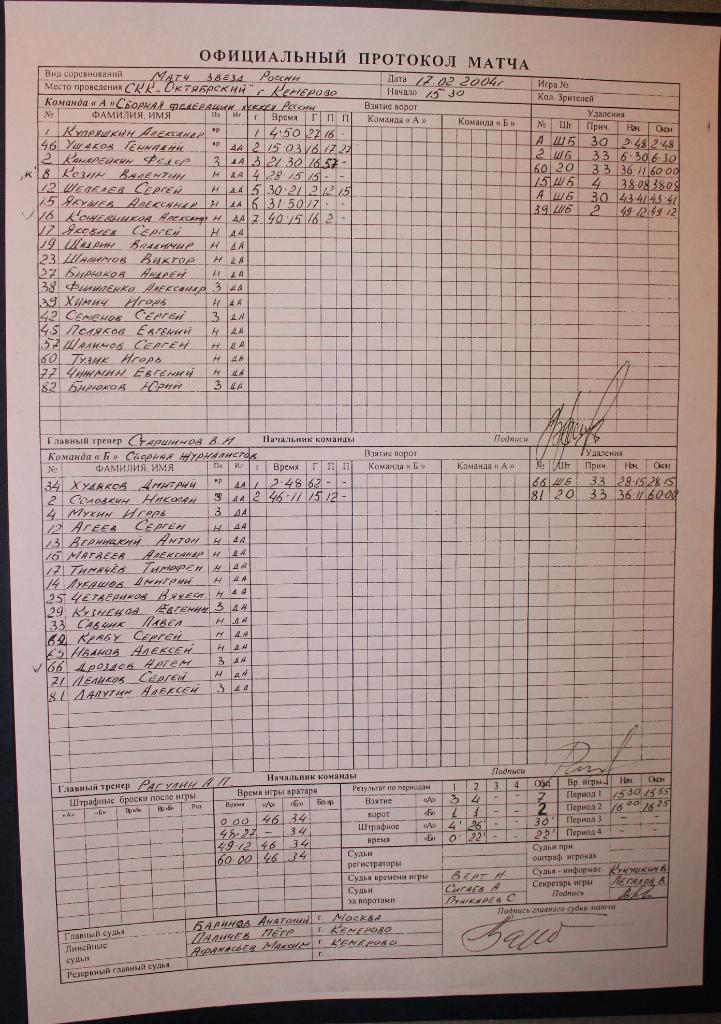 ОФИЦИАЛЬНЫЙ ПРОТОКОЛ МАТЧА
Вид соревнований Матч звезд России Дата 17.02.2004г Игра №
Место проведения СКК "Октябрьский" г Кемерово Начало 15 30 Кол. Зрителей
Команда «А» Сборная федерации хоккея России Взятие ворот Удаления
№ ФАМИЛИЯ, ИМЯ Пз Иг г Время Г П П Команда «А» Команда «Б» № Шт Прич. Нач. Окон
1 Купряшкин Александр вр 1 4·50 27 16 - А ШБ 30 2·48 2·48
46 Ушаков Геннадий вр ДА 2 15·03 16 17 27 2 ШБ 33 6·30 6·30
2 Канарейкин Федор З ДА 3 21·30 16 57 - 60 20 33 36·11 60·00
"К" 8 Козин Валентин Н ДА 4 28·15 15 - - 15 ШБ 4 38·08 38·08
12 Шепелев Сергей Н ДА 5 30·21 2 12 15 А ШБ 30 43·41 43·41
15 Якушев Александр Н ДА 6 31·50 17 - - 39 ШБ 2 49·12 49·12
16 Кожевников Александр Н ДА 7 40·15 16 2 -
17 Яковлев Сергей Н ДА
19 Шадрин Владимир Н ДА
23 Шалимов Виктор Н ДА
27 Бирюков Андрей Н ДА
38 Филипенко Александр З ДА
39 Химич Игорь Н ДА
42 Семенов Сергей З ДА
45 Поляков Евгений Н ДА
57 Шалимов Сергей Н ДА
60 Тузик Игорь Н ДА
77 Чижмин Евгений Н ДА
82 Бирюков Юрий З ДА
Главный тренер Старшинов В.И Начальник команды Подписи
Команда «Б» Сборная журналистов Взятие ворот Удаления
№ ФАМИЛИЯ, ИМЯ Пз Иг г Время Г П П Команда «Б» Команда «А» № Шт Прич. Нач. Окон
34 Худяков Дмитрий вр ДА 1 2·48 62 - - 66 ШБ 33 28·15 28·15
2 Соловкин Николай З ДА 2 46·11 15 12 - 81 20 33 36·11 60·00
4 Мухин Игорь З ДА
12 Агеев Сергей Н ДА
13 Верницкий Антон Н ДА
15 Матвеев Александр Н ДА
17 Тимачёв Тимофей Н ДА
14 Лукашов Дмитрий Н ДА
25 Четвериков Вячесл Н ДА
29 Кузнецов Евгений З ДА
33 Савчик Павел Н ДА
62 Крабу Сергей Н ДА
65 Иванов Алексей Н ДА
66 Дроздов Артем З ДА
71 Леликов Сергей Н ДА
81 Лапутин Алексей З ДА
Главный тренер Рагулин А.П. Начальник команды Подписи
Штрафные броски после игры Время игры вратаря Результат по периодам 1 2 3 4 Общ Вр. игры Нач. Окон
«А» «Б» Вр«А» Вр«Б» Рез Время «А» «Б» Взятие «А» 3 4 - - 7 Период 1 15 30 15 55
0 00 46 34 ворот «Б» 1 1 - - 2 Период 2 16 00 16 25
48·27 - 34 Штрафное «А» 4' 26' - - 30' Период 3
49·12 46 34 время «Б» 0' 22' - - 22' Период 4
60·00 46 34
Судьи регистраторы Судьи при оштраф. игроках
Судья времени игры Верт И. Судья - информат Кунушкин В.
Судьи за воротами Сигаев А Секретарь игры Легалов В.
Пушкарев С Подпись
Главный судья Баринов Анатолий г. Москва Подпись главного судьи матча
Линейные судьи Паличев Пётр г. Кемерово
Афанасьев Максим г. Кемерово
Резервный главный судья г.